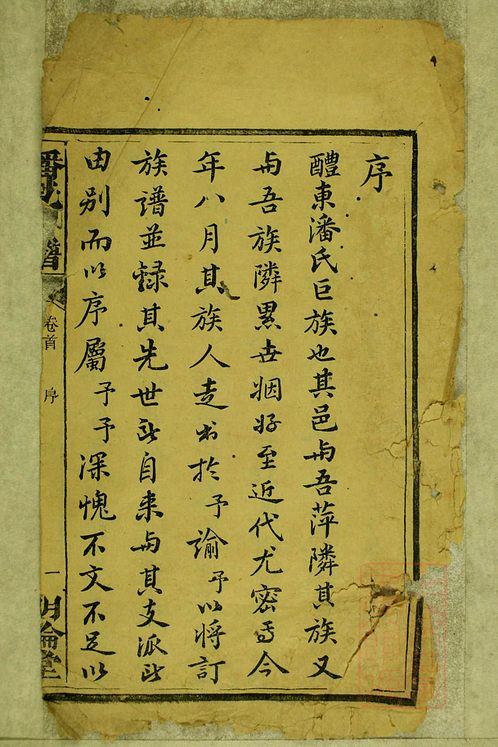 序
醴東潘氏巨族也其邑与吾萍隣其族又
与吾族隣累世姻好至近代尤密焉今
年八月其族人走书於予諭予以将訂
族譜並録其先世所自来与其支派所
由别而以序屬予予深愧不文不足以
潘氏 譜
卷首 序
一
明倫堂